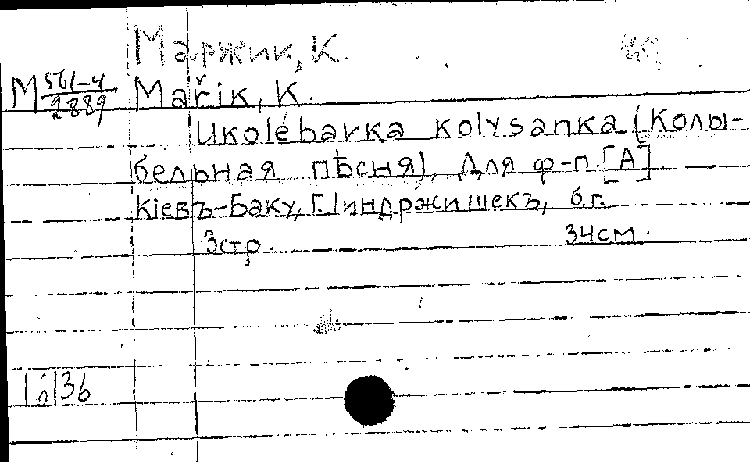 Маржик, К.
М 561-4/2889
Mařik, K.
Ukolébavka kolysanka (Колы-
бельная пѣсня). Для ф-п. [А]
Кіевъ-Баку, Г. Индржишекъ, б.г.
3 стр. 34 см.